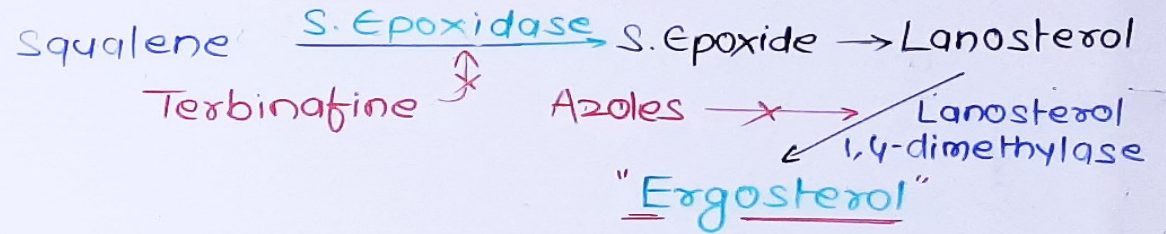 Squalene S. Epoxidase S. Epoxide → Lanosterol
Terbinafine Azoles Lanosterol
1,4-dimethylase
"Ergosterol"